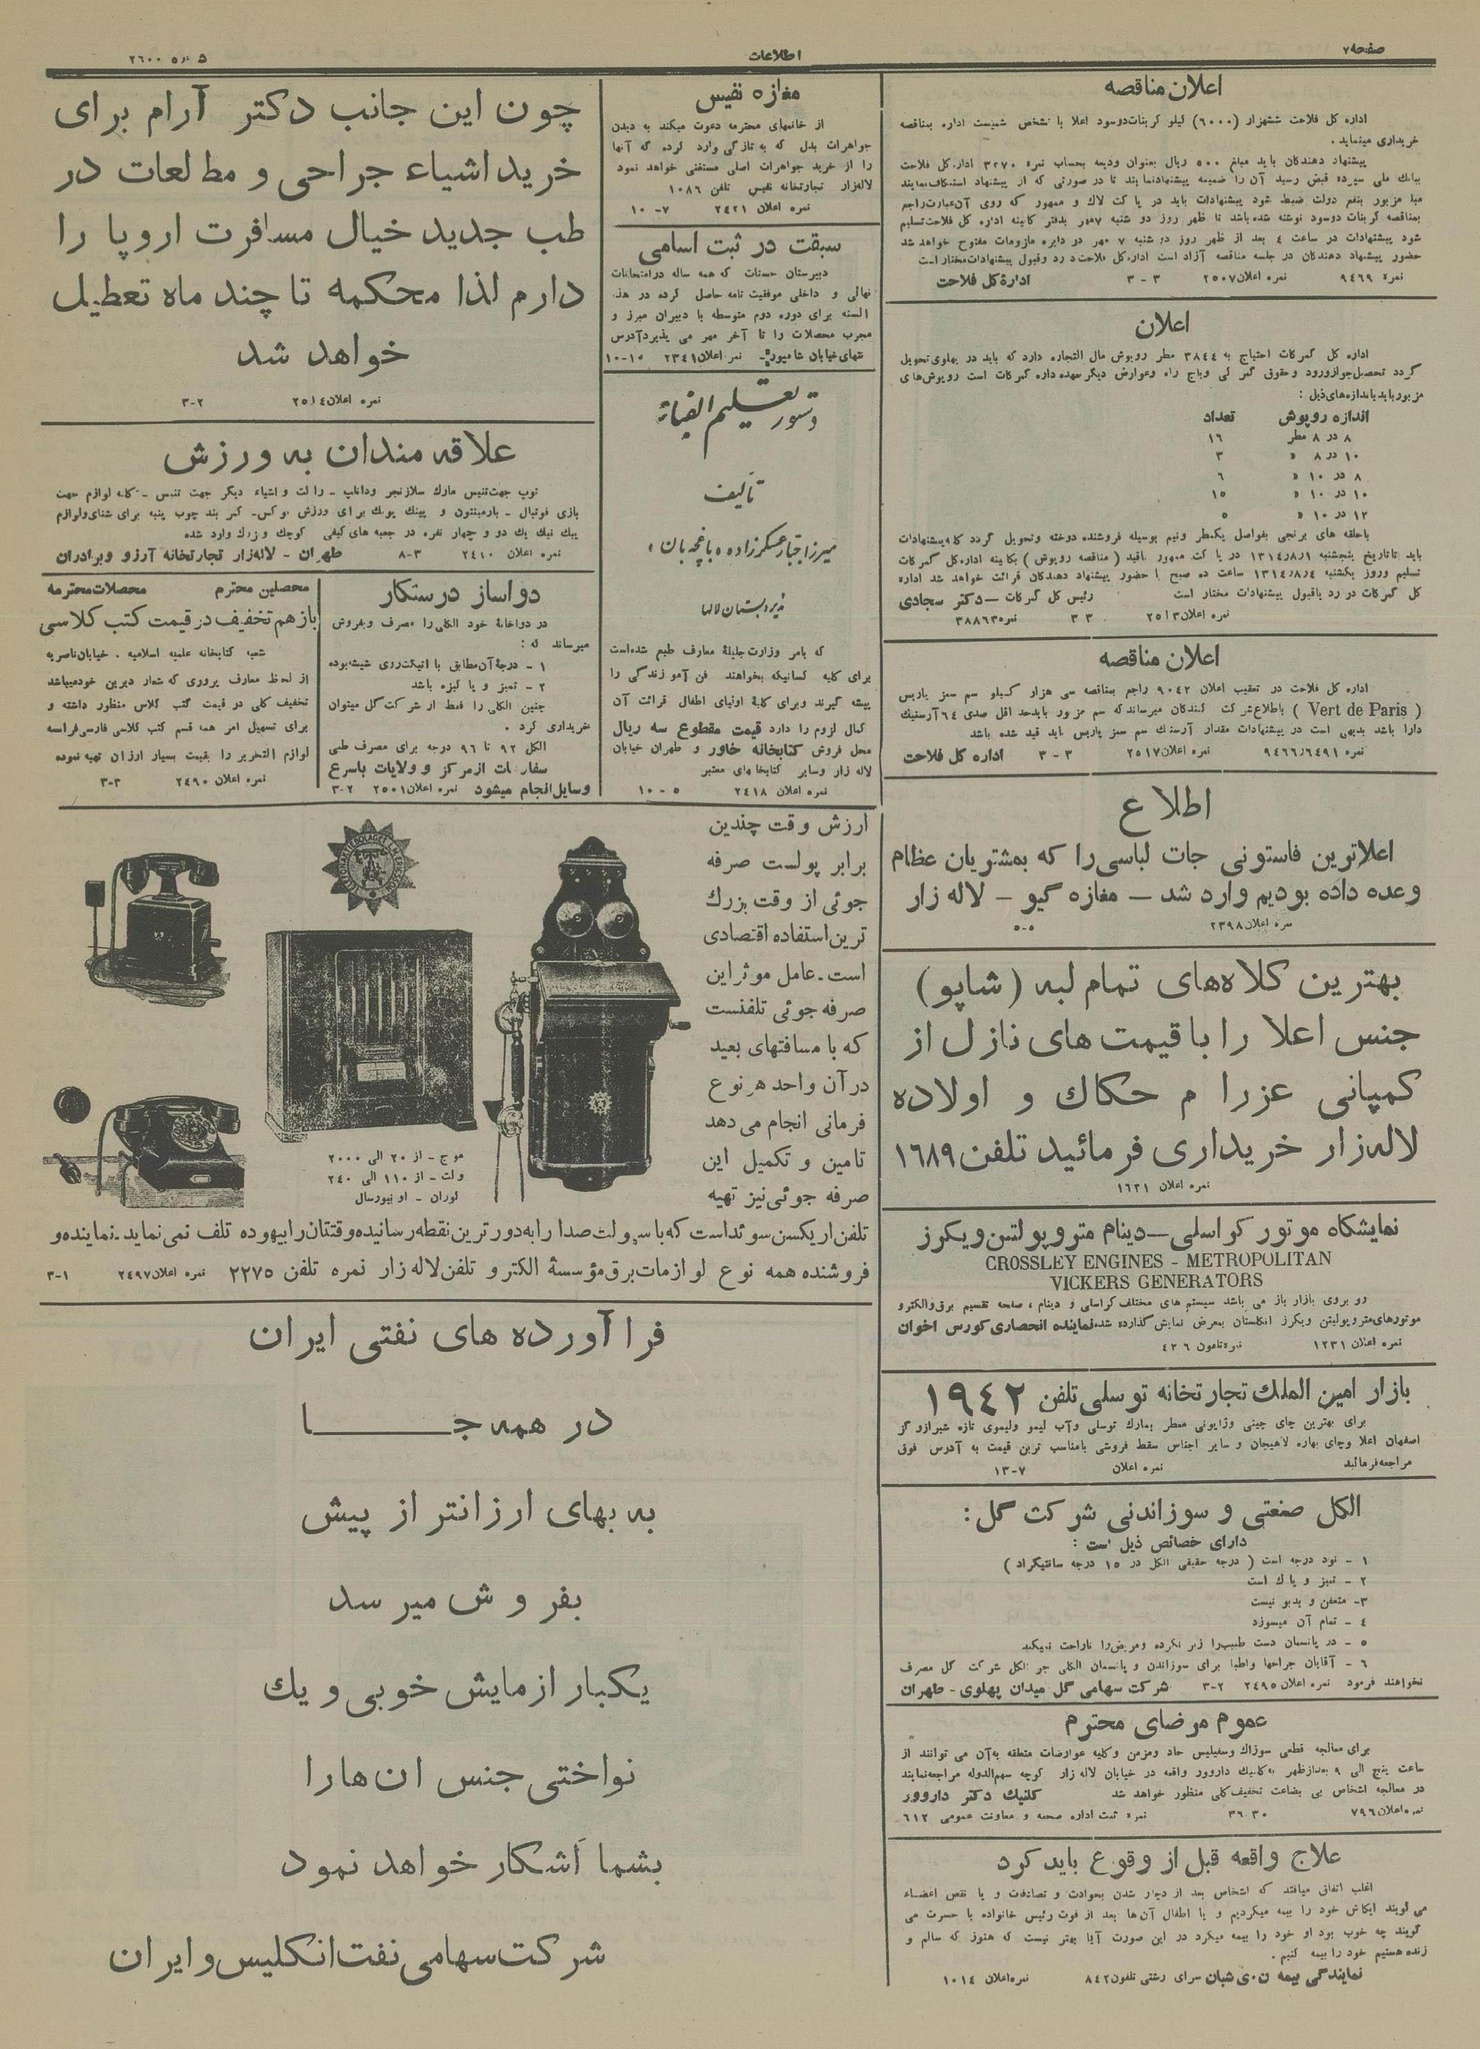 صفحه ۷
اطلاعات
شماره ۲۶۰۰
اعلان مناقصه
اداره کل فلاحت ششهزار (۶۰۰۰) کیلو کربنات دوسود اعلا با تشخص شصت اداره بمناقصه
خریداری مینماید.
پیشنهاد دهندگان باید مبلغ ۵۰۰ ریال بعنوان ودیعه بحساب نمره ۳۲۷۰ اداره کل فلاحت
ببانك ملی سپرده قبض رسید آن را ضمیمه پیشنهاد نمایند تا در صورتی که از پیشنهاد استنکاف نمایند
مبلغ مزبور بنفع دولت ضبط شود پیشنهادات باید در پاکت لاك و ممهور که روی آن عبارت راجع
بمناقصه کربنات دوسود نوشته شده باشد تا ظهر روز دو شنبه ۷ مهر بدفتر کابینه اداره کل فلاحت تسلیم
شود پیشنهادات در ساعت ٤ بعد از ظهر روز دو شنبه ۷ مهر در دایره ملزومات مفتوح خواهد شد
حضور پیشنهاد دهندگان در جلسه مناقصه آزاد است اداره کل فلاحت در رد و قبول پیشنهادات مختار است
نمره ۹٤۶۹ نمره اعلان ۲۵۰۷ ۳ - ۳ اداره کل فلاحت
اعلان
اداره کل گمرکات احتیاج به ۳۸٤٤ مطر روپوش مال التجاره دارد که باید در پهلوی تحویل
گردد تحصیل جواز ورود و حقوق گمرکی و باج راه و عوارض دیگر بعهده اداره گمرکات است روپوش های
مزبور باید باندازه های ذیل :
اندازه روپوش تعداد
۸ در ۸ مطر ۱۶
۱۰ در ۸ » ۳
۸ در ۱۰ » ۶
۱۰ در ۱۰ » ۱۵
۱۲ در ۱۰ » ۵
باحلقه های برنجی بفواصل یکمطر ونیم بوسیله فروشنده دوخته و تحویل گردد کلیه پیشنهادات
باید تا تاریخ پنجشنبه ۱۳۱٤٫۸٫۱ در پاکت ممهور باقید (مناقصه روپوش) بکابینه اداره کل گمرکات
تسلیم وروز یکشنبه ۱۳۱٤٫۸٫٤ ساعت ده صبح با حضور پیشنهاد دهندگان قرائت خواهد شد اداره
کل گمرکات در رد یاقبول پیشنهادات مختار است رئیس کل گمرکات – دکتر سجادی
نمره اعلان ۲۵۱۳ ۳ ۳ نمره ۳۸۸۶۳
اعلان مناقصه
اداره کل فلاحت در تعقیب اعلان ۹۰٤۲ راجع بمناقصه سی هزار کیلو سم سبز پاریس
(Vert de Paris) باطلاع شرکت کنندگان میرساند که سم مزبور باید حد اقل صدی ۶٤ آرسنیك
دارا باشد بدیهی است در پیشنهادات مقدار آرسنك سم سبز پاریس باید قید شده باشد
نمره ۹٤۶۶٫۶٤۹۱ نمره اعلان ۲۵۱۷ ۳ - ۳ اداره کل فلاحت
اطلاع
اعلاترین فاستونی جات لباسی را که بمشتریان عظام
وعده داده بودیم وارد شد – مغازه گیو – لاله زار
نمره اعلان ۲۳۹۸ ۵-۵
بهترین کلاه‌های تمام لبه (شاپو)
جنس اعلا را با قیمت های نازل از
کمپانی عزرا م حکاك و اولاده
لاله‌زار خریداری فرمائید تلفن ۱۶۸۹
نمره اعلان ۱۶۲۱
نمایشگاه موتور کراسلی – دینام متروپولتن ویکرز
CROSSLEY ENGINES - METROPOLITAN
VICKERS GENERATORS
رو بروی بازار باز می باشد سیستم های مختلف کراسلی و دینام، صفحه تقسیم برق والکترو
موتورهای متروپولیتن ویکرز انگلستان بمعرض نمایش گذارده شده نماینده انحصاری کورس اخوان
نمره اعلان ۱۲۳۱ نمره تلفون ٤۲۶
بازار امین الملك تجارتخانه توسلی تلفن ۱۹٤۲
برای بهترین چای چینی وژاپونی معطر بمارك توسلی وآب لیمو ولیموی تازه شیراز و گز
اصفهان اعلا وچای بهاره لاهیجان و سایر اجناس سقط فروشی بامناسب ترین قیمت به آدرس فوق
مراجعه فرمائید نمره اعلان ۷-۱۳
الکل صنعتی و سوزاندنی شرکت گل :
دارای خصائص ذیل است :
۱ - نود درجه است (درجه حقیقی الکل در ۱۵ درجه سانتیگراد)
۲ - تمیز و پاك است
۳- متعفن و بدبو نیست
٤ - تمام آن میسوزد
۵ - در پانسمان دست طبیب را زبر نکرده ومریض را ناراحت نمیکند
۶ - آقایان جراحها واطبا برای سوزاندن و پانسمان الکلی جز الکل شرکت گل مصرف
نخواهند فرمود نمره اعلان ۲٤۹۵ ۲-۳ شرکت سهامی گل میدان پهلوی - طهران
عموم مرضای محترم
برای معالجه قطعی سوزاك وسفیلیس حاد ومزمن وکلیه عوارضات متعلقه به‌آن می توانند از
ساعت پنج الی ۹ بعدازظهر به کلنیك داروور واقعه در خیابان لاله زار کوچه سهم‌الدوله مراجعه نمایند
در معالجه اشخاص بی بضاعت تخفیف کلی منظور خواهد شد کلنیك دکتر داروور
نمره اعلان ۷۹۶ ۳۰-۳۶ نمره ثبت اداره صحیه و معاونت عمومی ۶۱۲
علاج واقعه قبل از وقوع باید کرد
اغلب اتفاق میافتد که اشخاص بعد از دچار شدن بحوادث و تصادفات و یا نقص اعضاء
می گویند ایکاش خود را بیمه میکردیم و یا اطفال آن‌ها بعد از فوت رئیس خانواده با حسرت می
گویند چه خوب بود او خود را بیمه میکرد در این صورت آیا بهتر نیست که هنوز که سالم و
زنده هستیم خود را بیمه کنیم.
نمایندگی بیمه ن.ی شبان سرای رشتی تلفون ۸٤۲ نمره اعلان ۱۰۱٤
مغازه نفیس
از خانمهای محترمه دعوت میکند به دیدن
جواهرات بدل که به تازگی وارد کرده که آنها
را از خرید جواهرات اصلی مستغنی خواهد نمود
لاله‌زار تجارتخانه نفیس تلفن ۱۰۸۶
نمره اعلان ۲٤۲۱ ۷- ۱۰
سبقت در ثبت اسامی
دبیرستان حسنات که همه ساله درامتحانات
نهائی و داخلی موفقیت تامه حاصل کرده در هذه
السنه برای دوره دوم متوسطه با دبیران مبرز و
مجرب محصلات را تا آخر مهر می پذیرد آدرس
منتهای خیابان شاهپور- نمره اعلان ۲۳٤۱ ۱۰-۱۵
دستور تعلیم الفبا
تألیف
میرزا جبار عسکرزاده «باغچه بان»
مدیر دبستان لالها
که بامر وزارت جلیلهٔ معارف طبع شده است
برای کلیه کسانیکه بخواهند فن آموزندگی را
پیشه گیرند وبرای کلیهٔ اولیای اطفال قرائت آن
کمال لزوم را دارد قیمت مقطوع سه ریال
محل فروش کتابخانه خاور و طهران خیابان
لاله زار وسایر کتابخانهای معتبر
نمره اعلان ۲٤۱۸ ۵ - ۱۰
چون این جانب دکتر آرام برای
خرید اشیاء جراحی و مطالعات در
طب جدید خیال مسافرت اروپا را
دارم لذا محکمه تا چند ماه تعطیل
خواهد شد
نمره اعلان ۲۵۱٤ ۲-۳
علاقه مندان به ورزش
توپ جهت تنیس مارك سلازنجر ودانلپ – راکت و اشیاء دیگر جهت تنیس – کلیه لوازم جهت
بازی فوتبال – بارمینتون و پینك پونك برای ورزش بوکس- کمربند چوب پنبه برای شنای ولوازم
پیك نیك یك دو و چهار نفره در جعبه های کیفی کوچك و بزرك وارد شده
نمره اعلان ۲٤۱۰ ۳-۸ طهران – لاله‌زار تجارتخانه آرزو وبرادران
دواساز درستکار
در دواخانهٔ خود الکلی را مصرف وبفروش
میرساند که :
۱ - درجهٔ آن مطابق با اتیکت روی شیشه بوده
۲ - تمیز و پاکیزه باشد
چنین الکلی را فقط از شرکت گل میتوان
خریداری کرد .
الکل ۹۲ تا ۹۶ درجه برای مصرف طبی
سفارشات ازمرکز و ولایات باسرع
وسایل انجام میشود نمره اعلان ۲۵۰۱ ۲-۳
محصلین محترم محصلات محترمه
بازهم تخفیف در قیمت کتب کلاسی
شعبه کتابخانه علمیه اسلامیه . خیابان ناصریه
از لحاظ معارف پروری که شعار دیرین خود میباشد
تخفیف کلی در قیمت کتب کلاس منظور داشته و
برای تسهیل امر همه قسم کتب کلاسی فارسی فرانسه
لوازم التحریر را بقیمت بسیار ارزان تهیه نموده
نمره اعلان ۲٤۹۰ ۳-۳
ارزش وقت چندین
برابر پولست صرفه
جوئی از وقت بزرك
ترین استفاده اقتصادی
است. عامل موثر این
صرفه جوئی تلفنست
که با مسافتهای بعید
در آن واحد هر نوع
فرمانی انجام می دهد
تامین و تکمیل این
صرفه جوئی نیز تهیه
موج - از ۲۰ الی ۲۰۰۰
ولت - از ۱۱۰ الی ۲٤۰
لوران - اونیورسال
تلفن اریکسن سوئد است که باسهولت صدا را به دورترین نقطه رسانیده وقتتان را بیهوده تلف نمی نماید. نماینده و
فروشنده همه نوع لوازمات برق مؤسسهٔ الکترو تلفن لاله زار نمره تلفن ۲۲۷۵ نمره اعلان ۲٤۹۷ ۱-۳
فرآورده های نفتی ایران
در همه جــــــا
به بهای ارزانتر از پیش
بفروش میرسد
یکبار ازمایش خوبی و یك
نواختی جنس ان‌ها را
بشما آشکار خواهد نمود
شرکت سهامی نفت انگلیس و ایران